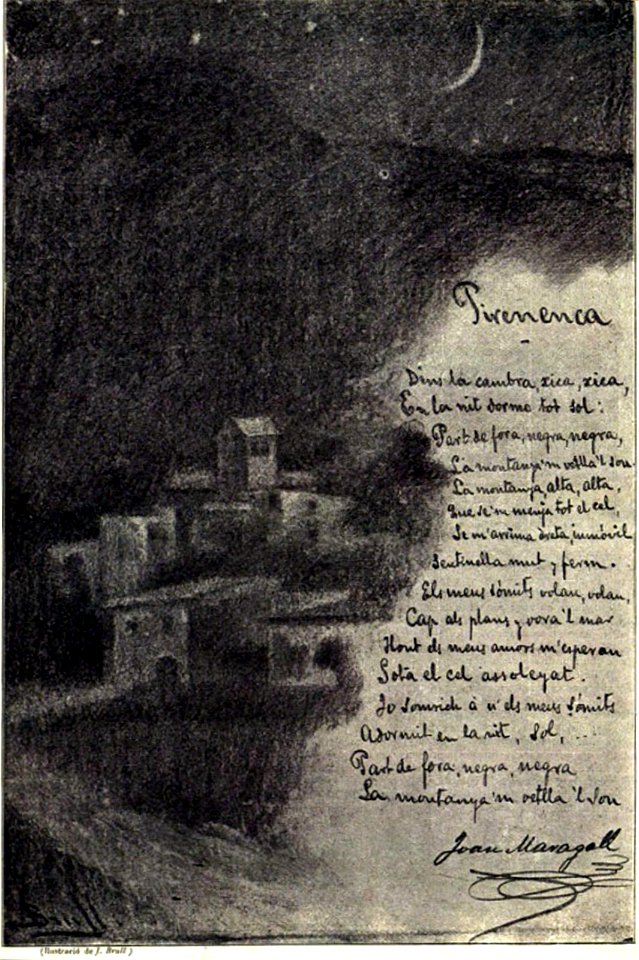 Pirenenca
Dins la cambra, xica, xica,
En la nit dormo tot sol:
Part de fora, negra, negra,
La montanya'm vetlla'l son.
La montanya, alta, alta,
Que se'm menja tot el cel,
Se m'arrima dreta, inmòvil
Sentinella mut y ferm.
Els meus sómits volan, volan,
Cap als plans y vora'l mar
Hont els meus amors m'esperan
Sota el cel assoleyat.
Jo somrich à n'els meus sómits
Adormit en la nit, sol, ...
Part de fora, negra, negra
La montanya'm vetlla'l son
Joan Maragall
Brull
(Ilustració de J. Brull)